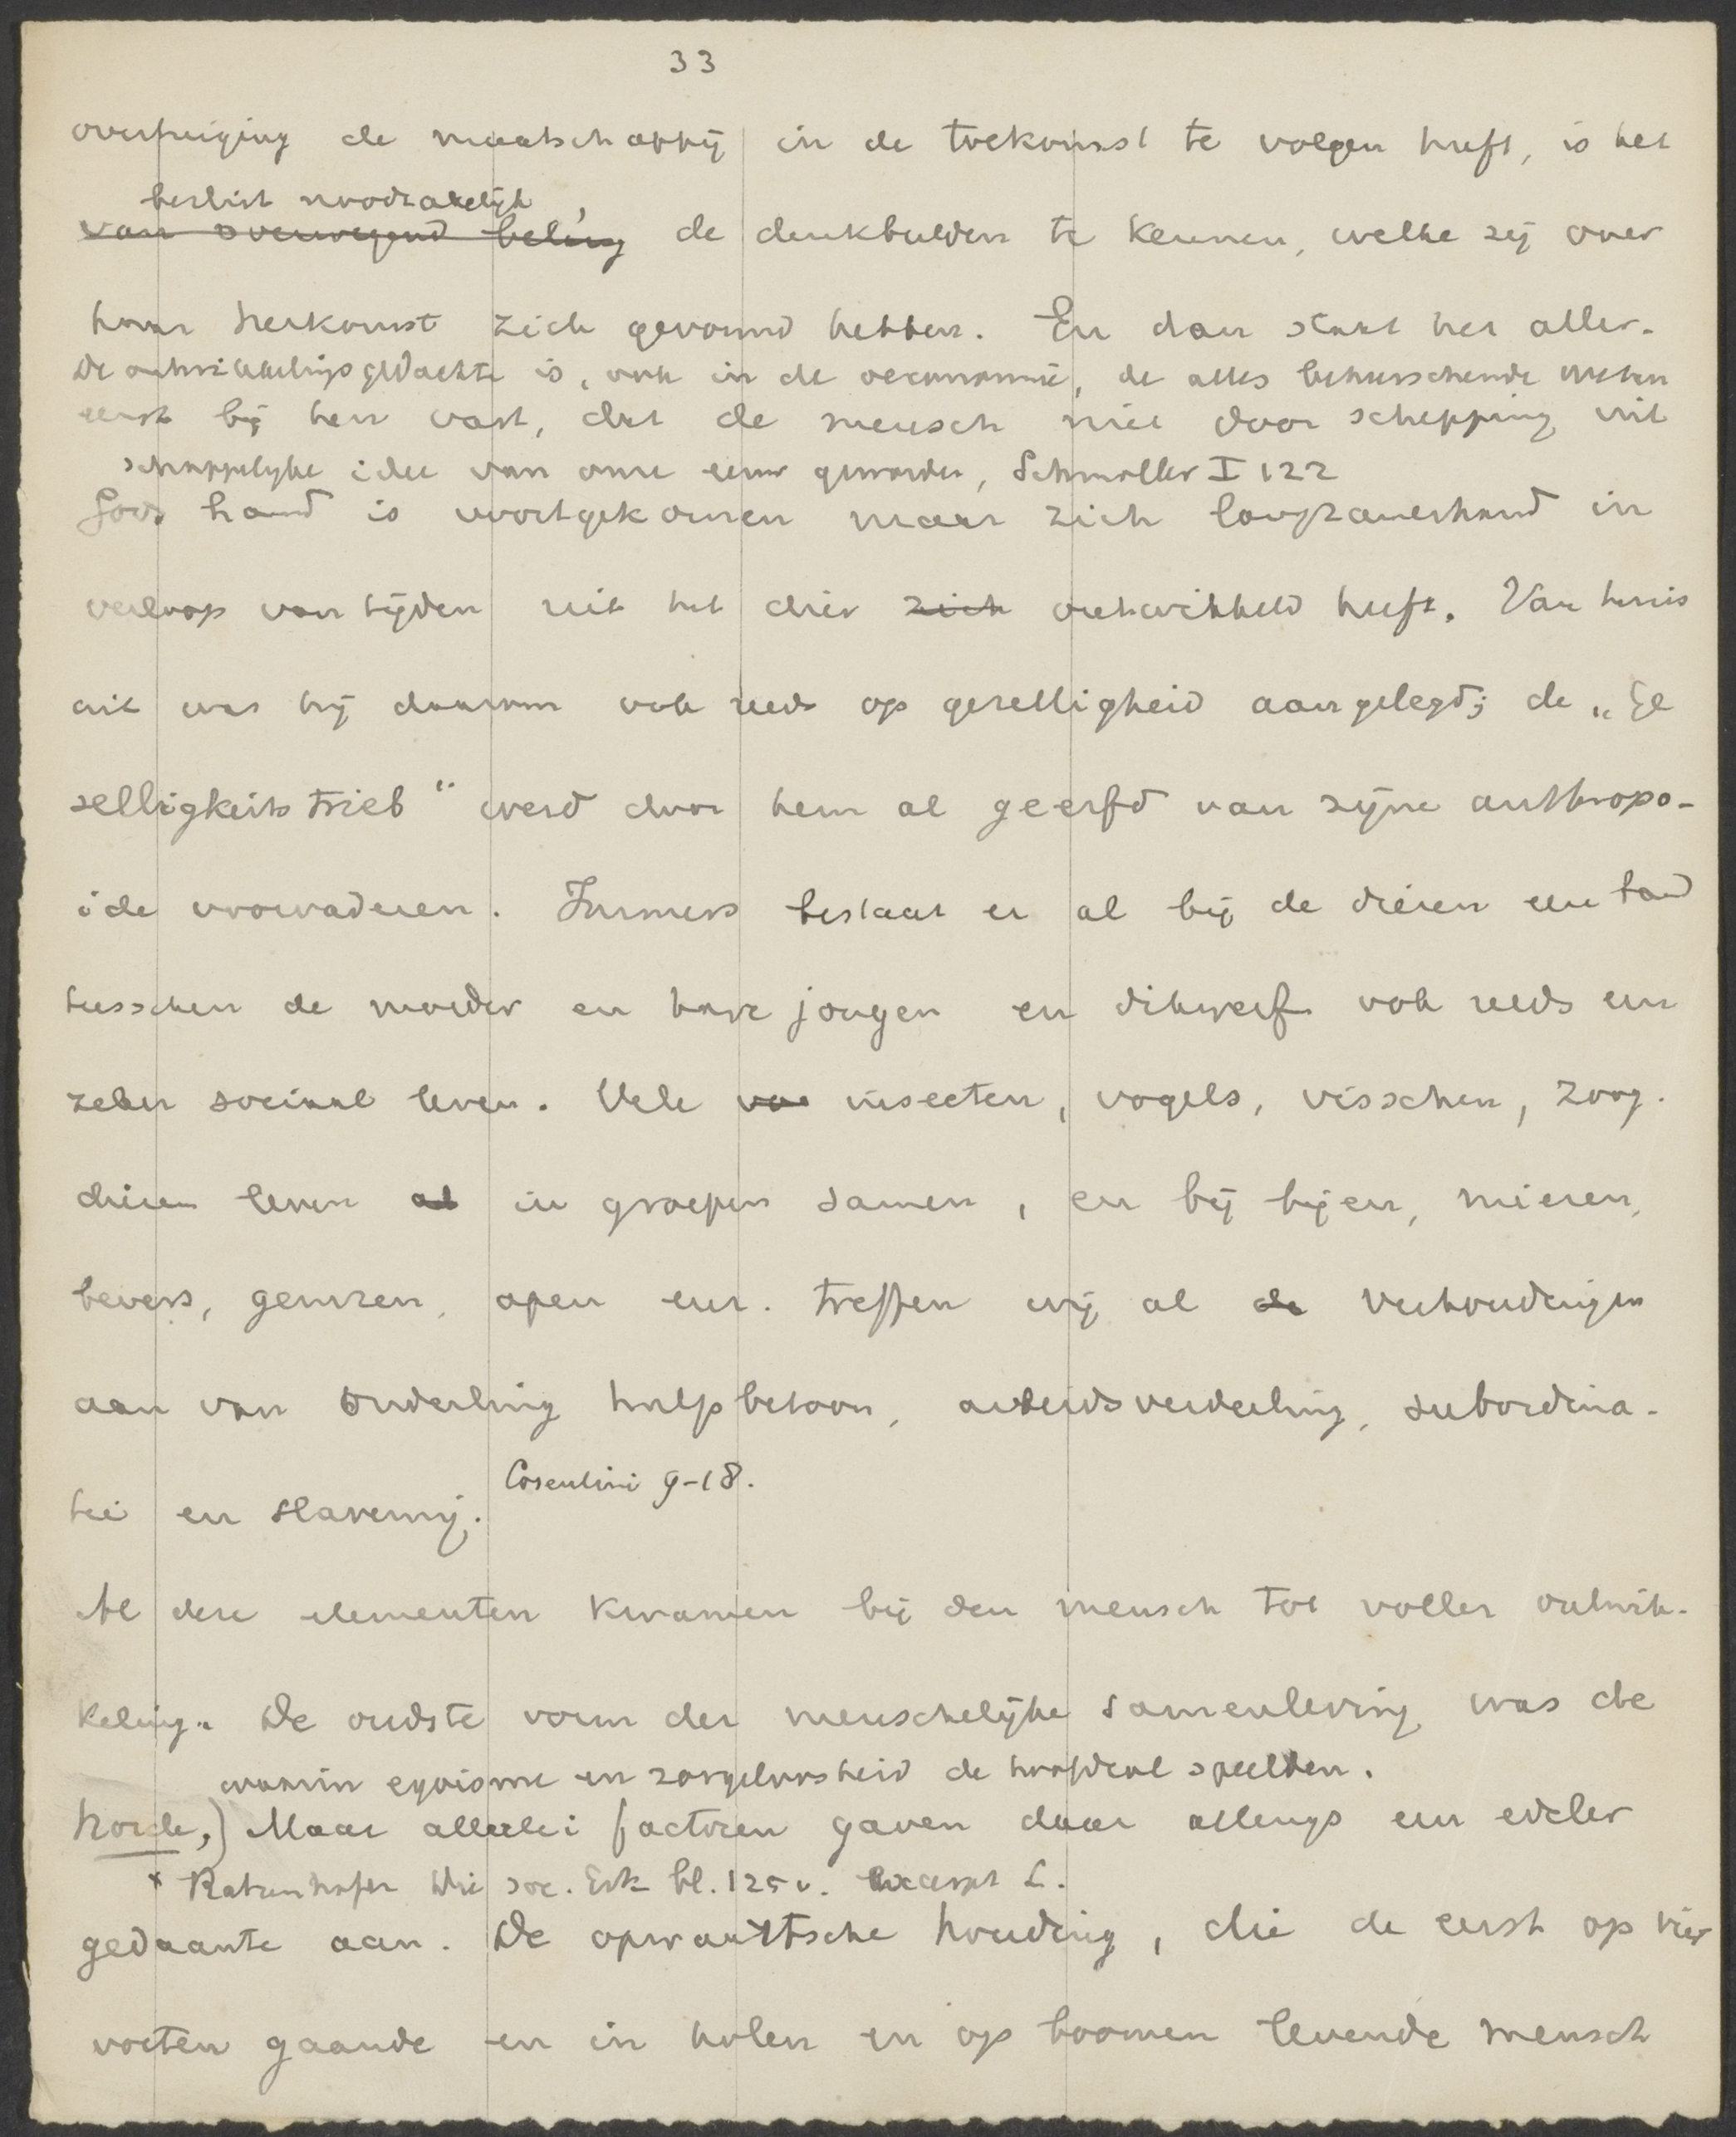 33
overtuiging de maatschappij in de toekomst te volgen heeft, is het
beslist noodzakelijk,
van overwegend belang de denkbeelden te kennen, welke zij over
haar herkomst zich gevormd hebben. En dan staat het aller-
De ontwikkelingsgedachte is, ook in de oeconomie, de alles beheerschende weten
eerst bij hen vast, dat de mensch niet door schepping uit
schappelijke idee van onze eeuw geworden, Schmoller I 122
Gods hand is voortgekomen maar zich langzamerhand in
verloop van tijden uit het dier zich ontwikkeld heeft. Van huis
uit was hij daarom ook reeds op gezelligheid aangelegd; de „Ge
selligkeitstrieb“ werd door hem al geerfd van zijne anthropo-
ide voorvaderen. Immers bestaat er al bij de dieren een band
tusschen de moeder en hare jongen en dikwerf ook reeds een
zeker sociaal leven. Vele voo insecten, vogels, visschen, zoog-
dieren leven al in groepen samen, en bij bijen, mieren,
bevers, gemzen, apen enz. treffen wij al de verhoudingen
aan van onderling hulpbetoon, arbeidsverdeeling, subordina-
tie en slavernij. Cosentini 9-18.
Al deze elementen kwamen bij den mensch tot voller ontwik-
keling. De oudste vorm der menschelijke samenleving was de
waarin egoisme en zorgeloosheid de hoofdrol speelden.
horde,) Maar allerlei factoren gaven daar allengs een edeler
* Ratzenhofer Die soc. Erk bl. 125 v.
gedaante aan. De opwaartsche houding, die de eerst op vier
voeten gaande en in holen en op boomen levende mensch